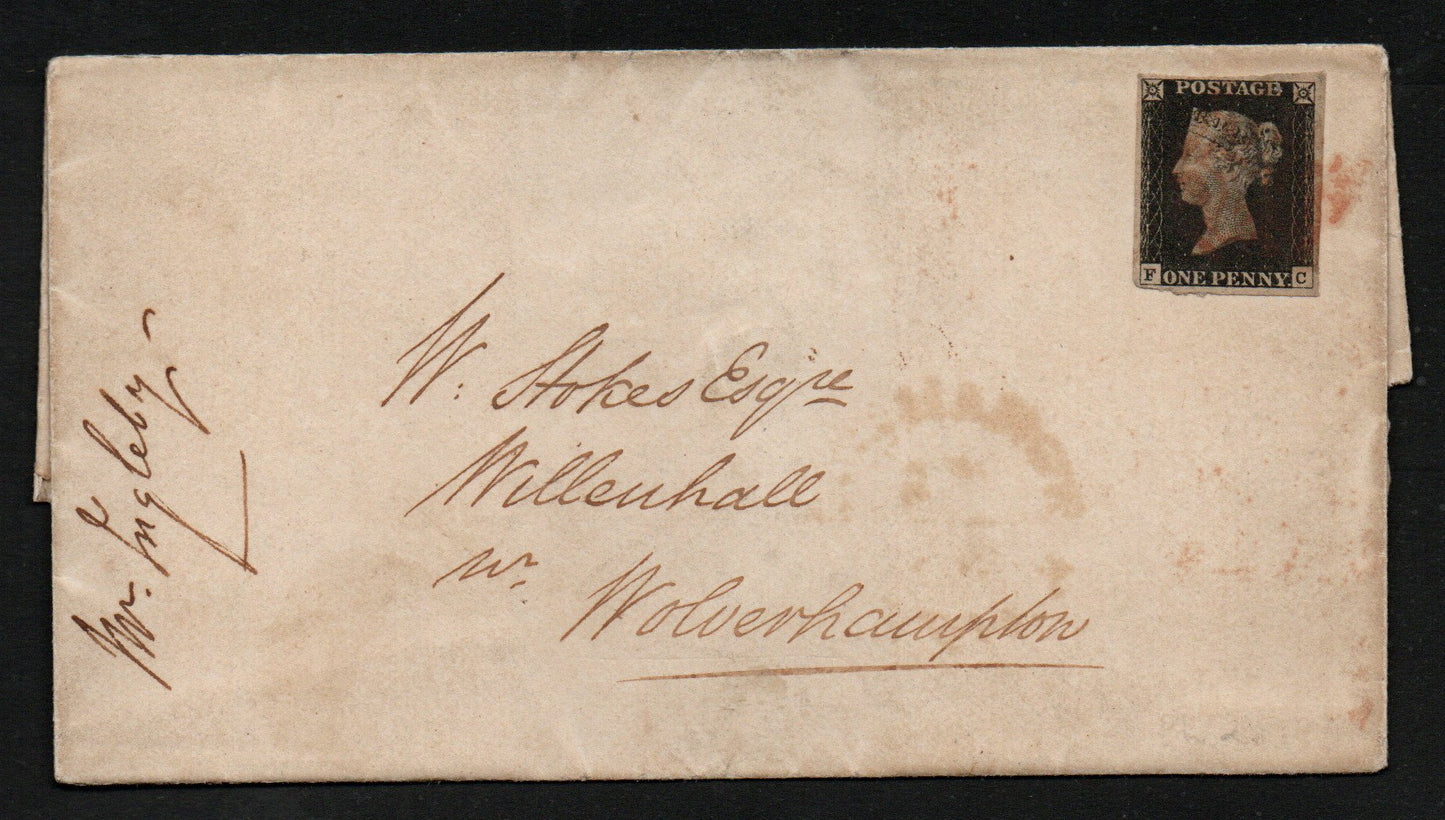 POSTAGE
F ONE PENNY. C
W. Stokes Esqre
Willenhall
nr. Wolverhampton
Mr. Ingleby